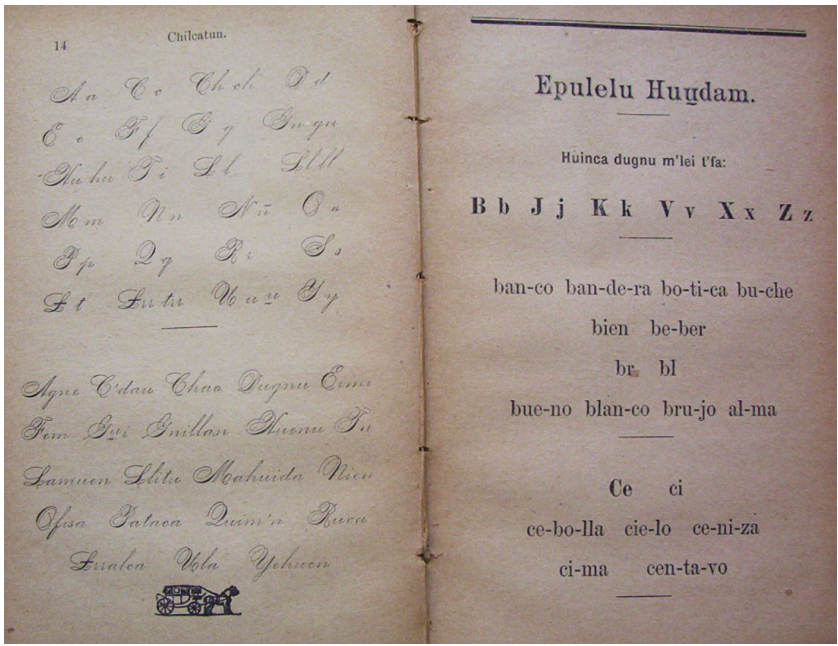 14
Chilcatun.
A a C c Ch ch D d
E e F f G g Gn gn
Hu hu I i L l Ll ll
M m N n O o
P p Q q R r S s
L t U u Y y
Agne C'dau Chao Dugnu Eimi
Fem Gnillan Huenu
Lamuen Llitu Mahuida Nien
Ofisa Pataca Quim'n Ruca
Ula Yehuen
Epulelu Huu̱dam.
Huinca dugnu m'lei t'fa:
B b J j K k V v X x Z z
ban-co ban-de-ra bo-ti-ca bu-che
bien be-ber
br bl
bue-no blan-co bru-jo al-ma
Ce ci
ce-bo-lla cie-lo ce-ni-za
ci-ma cen-ta-vo